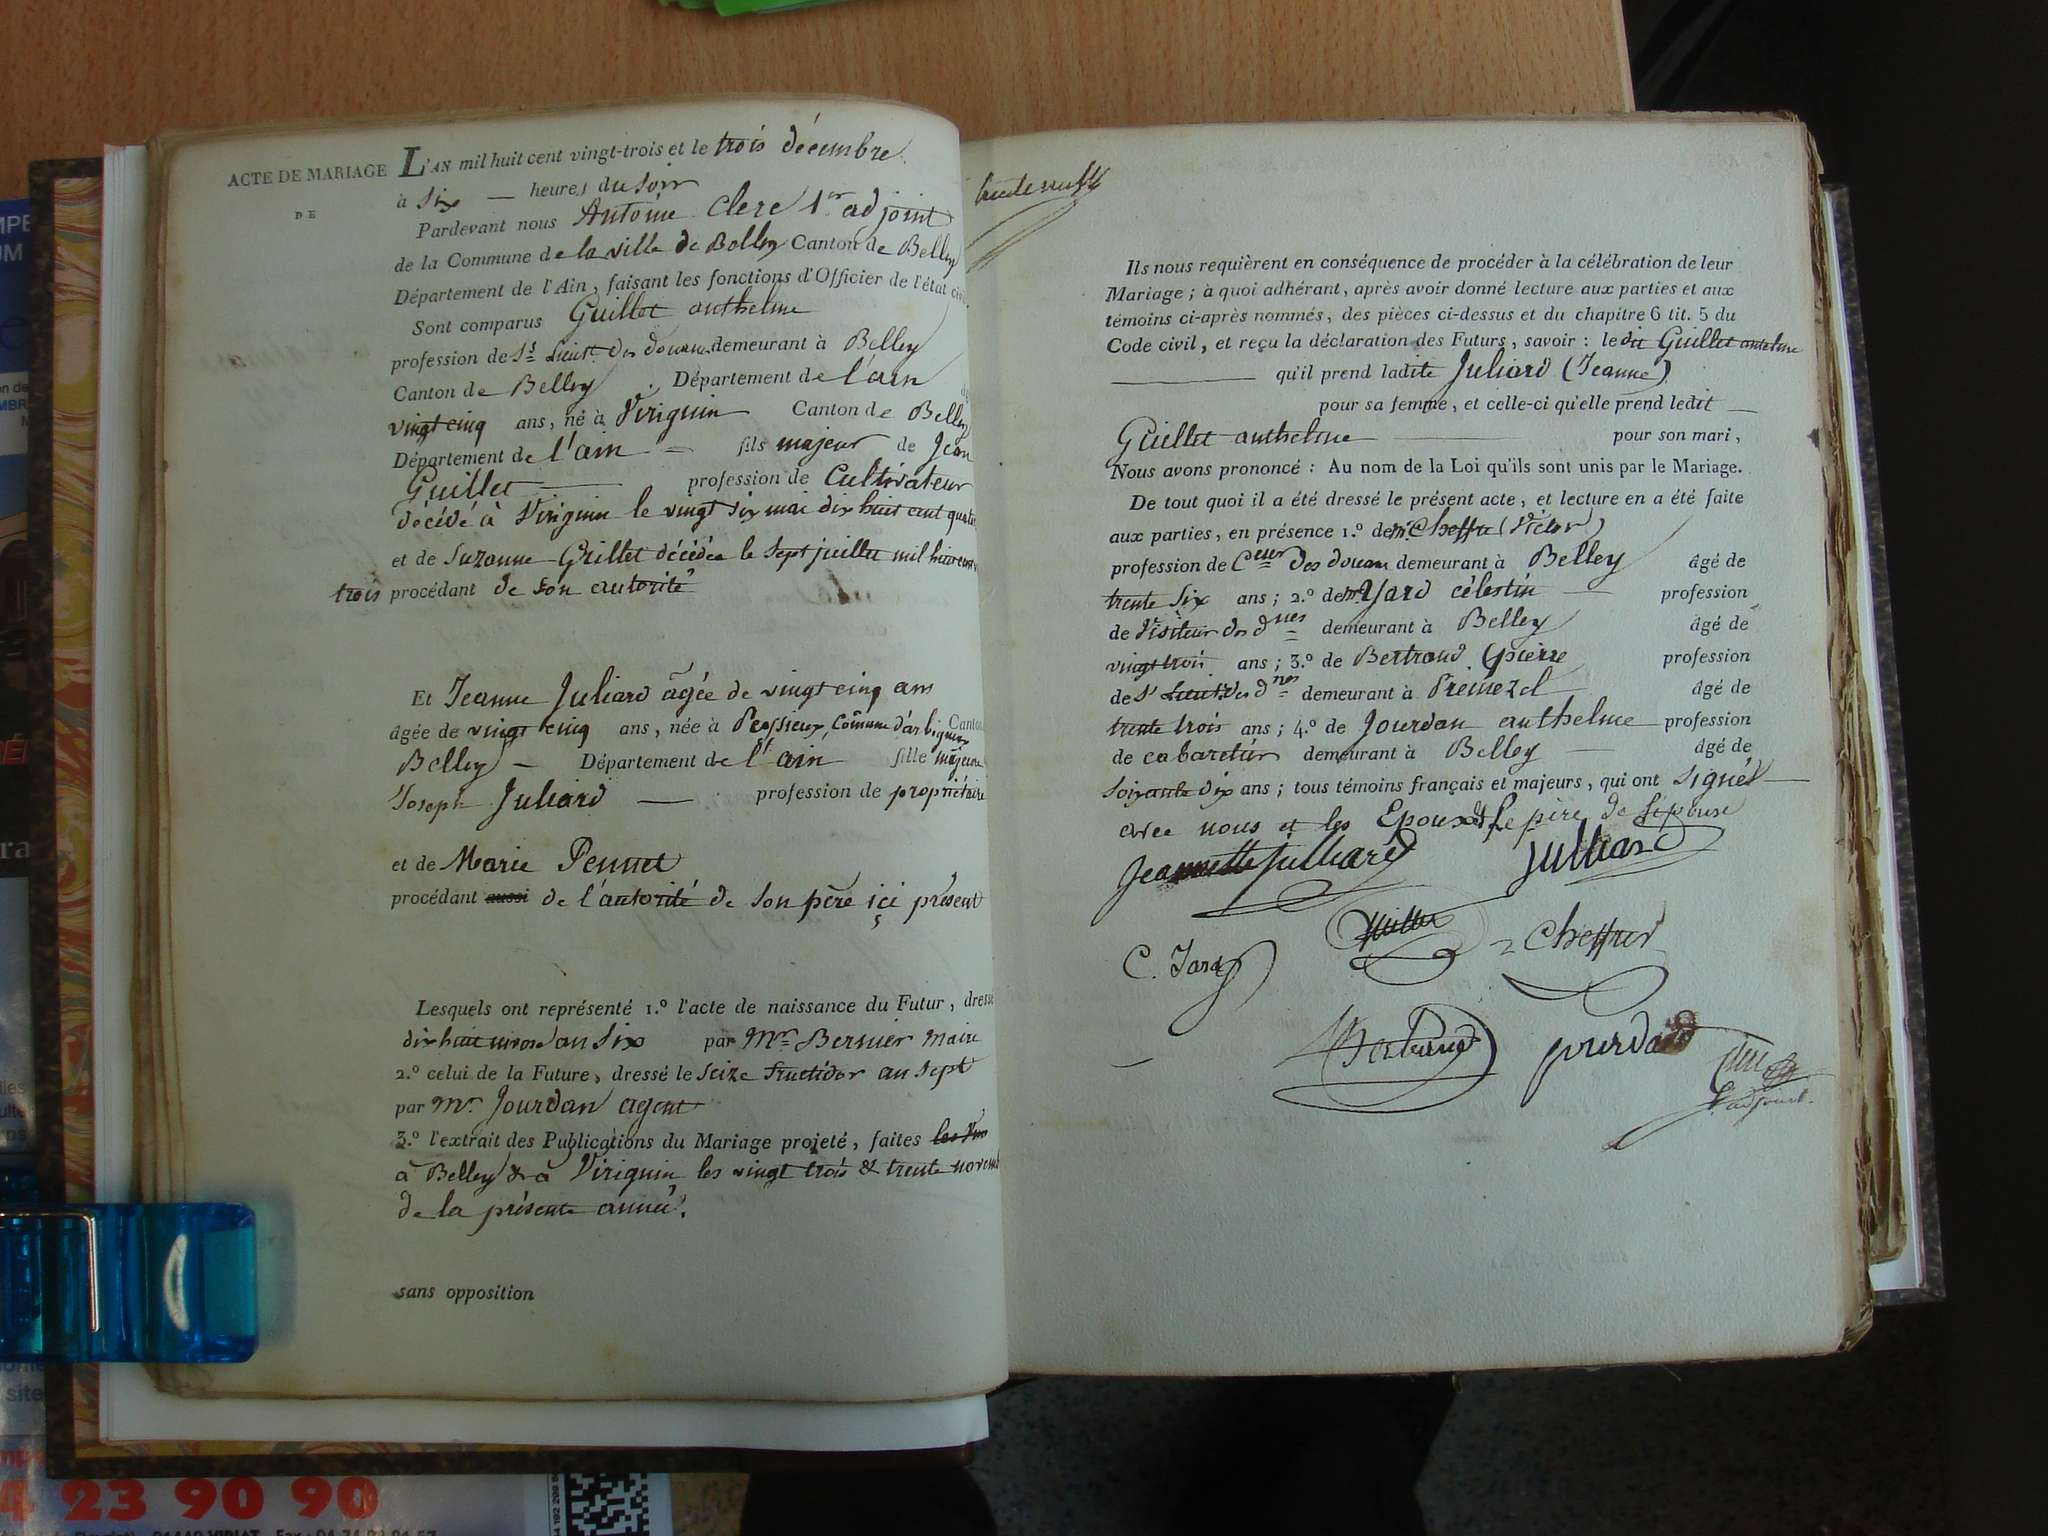 ACTE DE MARIAGE
DE
L'AN mil huit cent vingt-trois et le trois décembre
à six — heures du soir
Pardevant nous Antoine Clerc 1er adjoint
de la Commune de la ville de Belley Canton de Belley
Département de l'Ain, faisant les fonctions d'Officier de l'état civil.
Sont comparus Guillet anthelme
profession de Ss Lieut. des douanes demeurant à Belley
Canton de Belley Département de l'ain
vingt cinq ans, né à Virignin Canton de Belley
Département de l'ain — fils majeur de Jean
Guillet — profession de Cultivateur
décédé à Virignin le vingt six mai dix huit cent quatre
et de Suzanne Grillet décédée le sept juillet mil huit cent
trois procédant de son autorité
Et Jeanne Juliard âgée de vingt cinq ans
âgée de vingt cinq ans, née à Peyssieux, Commune d'arbignieu Canton
Belley — Département de l'ain fille majeure
Joseph Juliard — profession de propriétaire
et de Marie Pennet
procédant aussi de l'autorité de son père içi présent
Lesquels ont représenté 1.º l'acte de naissance du Futur, dressé
dix huit nivose an six par Mr Bernier maire
2.º celui de la Future, dressé le seize fructidor an sept
par Mr Jourdan agent
3.º l'extrait des Publications du Mariage projeté, faites
à Belley & à Virignin les vingt trois & trente novembre
de la présente année.
sans opposition
trente neuf
Ils nous requièrent en conséquence de procéder à la célébration de leur
Mariage; à quoi adhérant, après avoir donné lecture aux parties et aux
témoins ci-après nommés, des pièces ci-dessus et du chapitre 6 tit. 5 du
Code civil, et reçu la déclaration des Futurs, savoir: ledit Guillet anthelme
— qu'il prend ladite Juliard (Jeanne)
pour sa femme, et celle-ci qu'elle prend ledit —
Guillet anthelme — pour son mari,
Nous avons prononcé: Au nom de la Loi qu'ils sont unis par le Mariage.
De tout quoi il a été dressé le présent acte, et lecture en a été faite
aux parties, en présence 1.º de mr Cheffre (Victor)
profession de Ceveur des douanes demeurant à Belley âgé de
trente six ans; 2.º de mr Yard célestin — profession
de Visiteur des dnes demeurant à Belley âgé de
vingt trois ans; 3.º de Bertrand pierre profession
de Ss Lieut. des dnes demeurant à Premezel âgé de
trente trois ans; 4.º de Jourdan anthelme profession
de cabaretier demeurant à Belley — âgé de
soixante dix ans; tous témoins français et majeurs, qui ont signés —
avec nous et les Epoux & le père de l'épouse
Jeannette Julliard Julliard
Guillet
C. Yard Cheffre
Bertrand jourdan
1er adjoint.
23 90 90